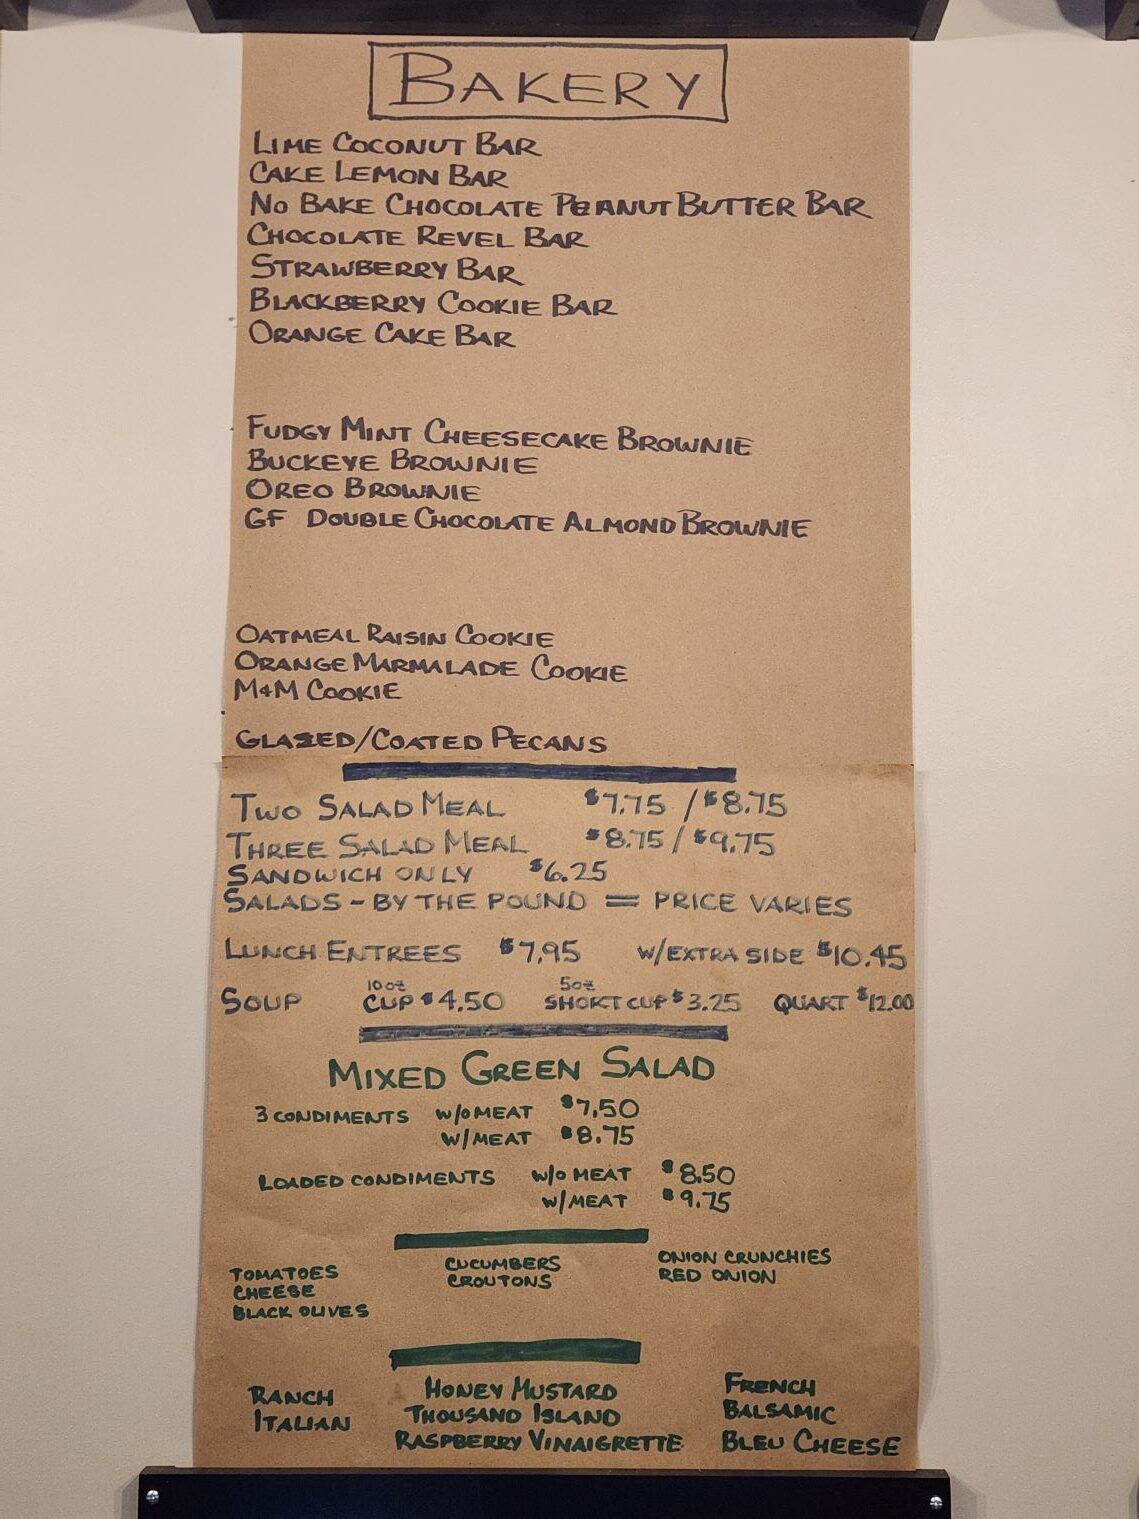 BAKERY
LIME COCONUT BAR
CAKE LEMON BAR
NO BAKE CHOCOLATE PEANUT BUTTER BAR
CHOCOLATE REVEL BAR
STRAWBERRY BAR
BLACKBERRY COOKIE BAR
ORANGE CAKE BAR
FUDGY MINT CHEESECAKE BROWNIE
BUCKEYE BROWNIE
OREO BROWNIE
GF DOUBLE CHOCOLATE ALMOND BROWNIE
OATMEAL RAISIN COOKIE
ORANGE MARMALADE COOKIE
M&M COOKIE
GLAZED/COATED PECANS
TWO SALAD MEAL $7.75 / $8.75
THREE SALAD MEAL $8.75 / $9.75
SANDWICH ONLY $6.25
SALADS - BY THE POUND = PRICE VARIES
LUNCH ENTREES $7.95 W/EXTRA SIDE $10.45
SOUP 10oz CUP $4.50 5oz SHORT CUP $3.25 QUART $12.00
MIXED GREEN SALAD
3 CONDIMENTS W/O MEAT $7.50
W/MEAT $8.75
LOADED CONDIMENTS W/O MEAT $8.50
W/MEAT $9.75
TOMATOES
CHEESE
BLACK OLIVES
CUCUMBERS
CROUTONS
ONION CRUNCHIES
RED ONION
RANCH
ITALIAN
HONEY MUSTARD
THOUSAND ISLAND
RASPBERRY VINAIGRETTE
FRENCH
BALSAMIC
BLEU CHEESE